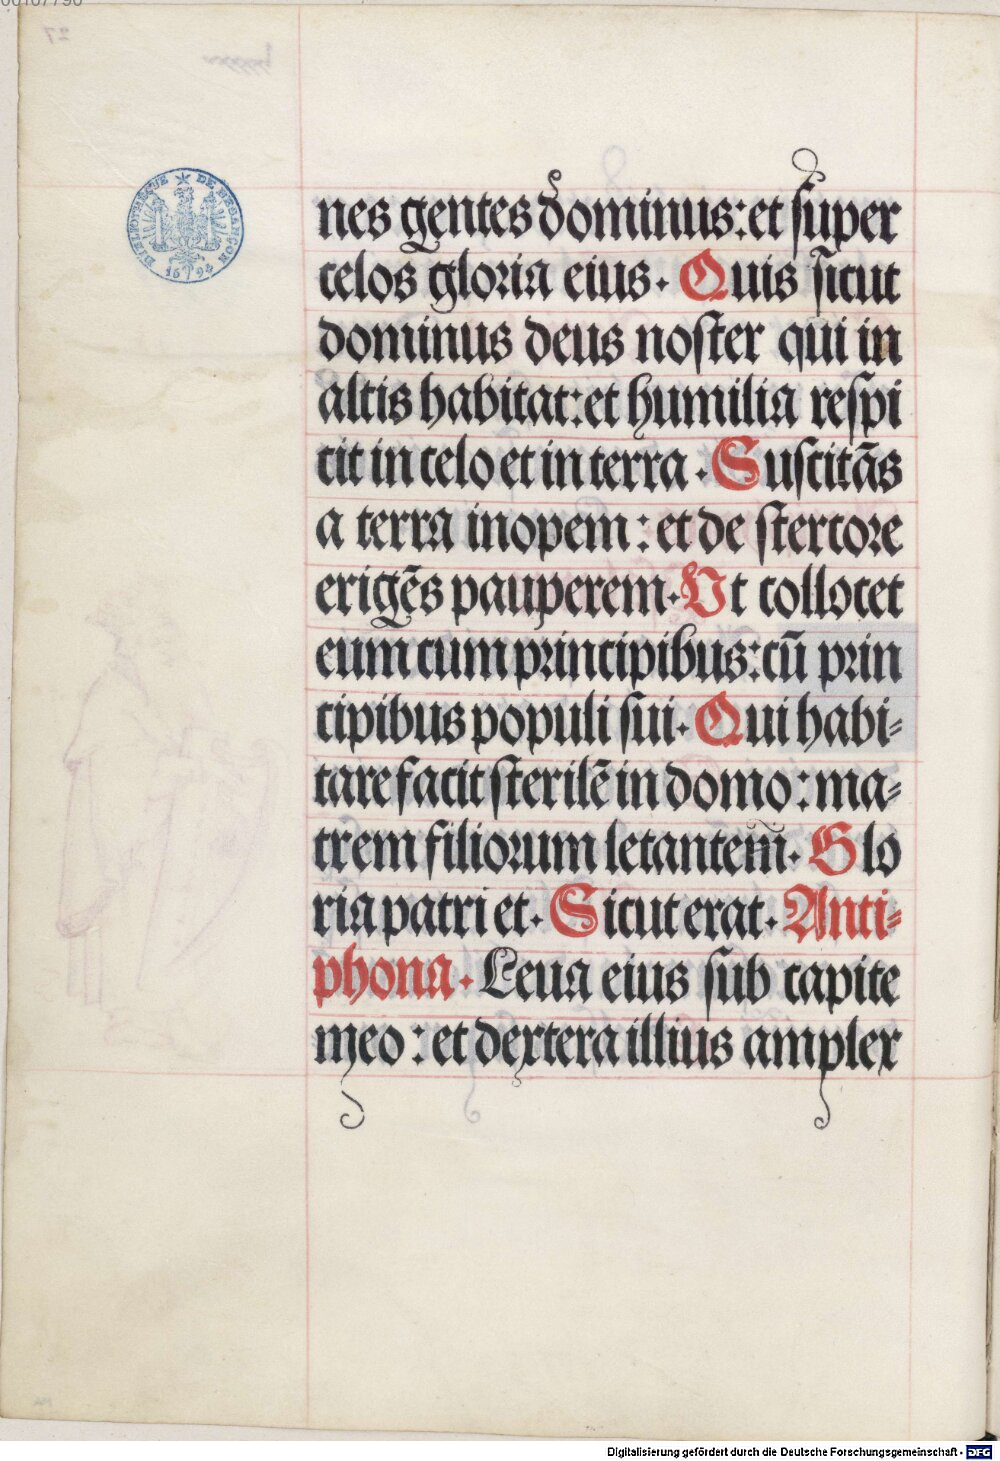 nes gentes dominus: et super
celos gloria eius. Quis sicut
dominus deus noster qui in
altis habitat: et humilia respi
cit in celo et in terra. Suscitās
a terra inopem: et de stercore
erigēs pauperem. Ut collocet
eum cum principibus: cū prin
cipibus populi sui. Qui habi-
tare facit sterilē in domo: ma-
trem filiorum letantem. Glo
ria patri et. Sicut erat. Anti-
phona. Leua eius sub capite
meo: et dextera illius amplex
BIBLIOTHEQUE DE BESANCON
1694
Digitalisierung gefördert durch die Deutsche Forschungsgemeinschaft - DFG